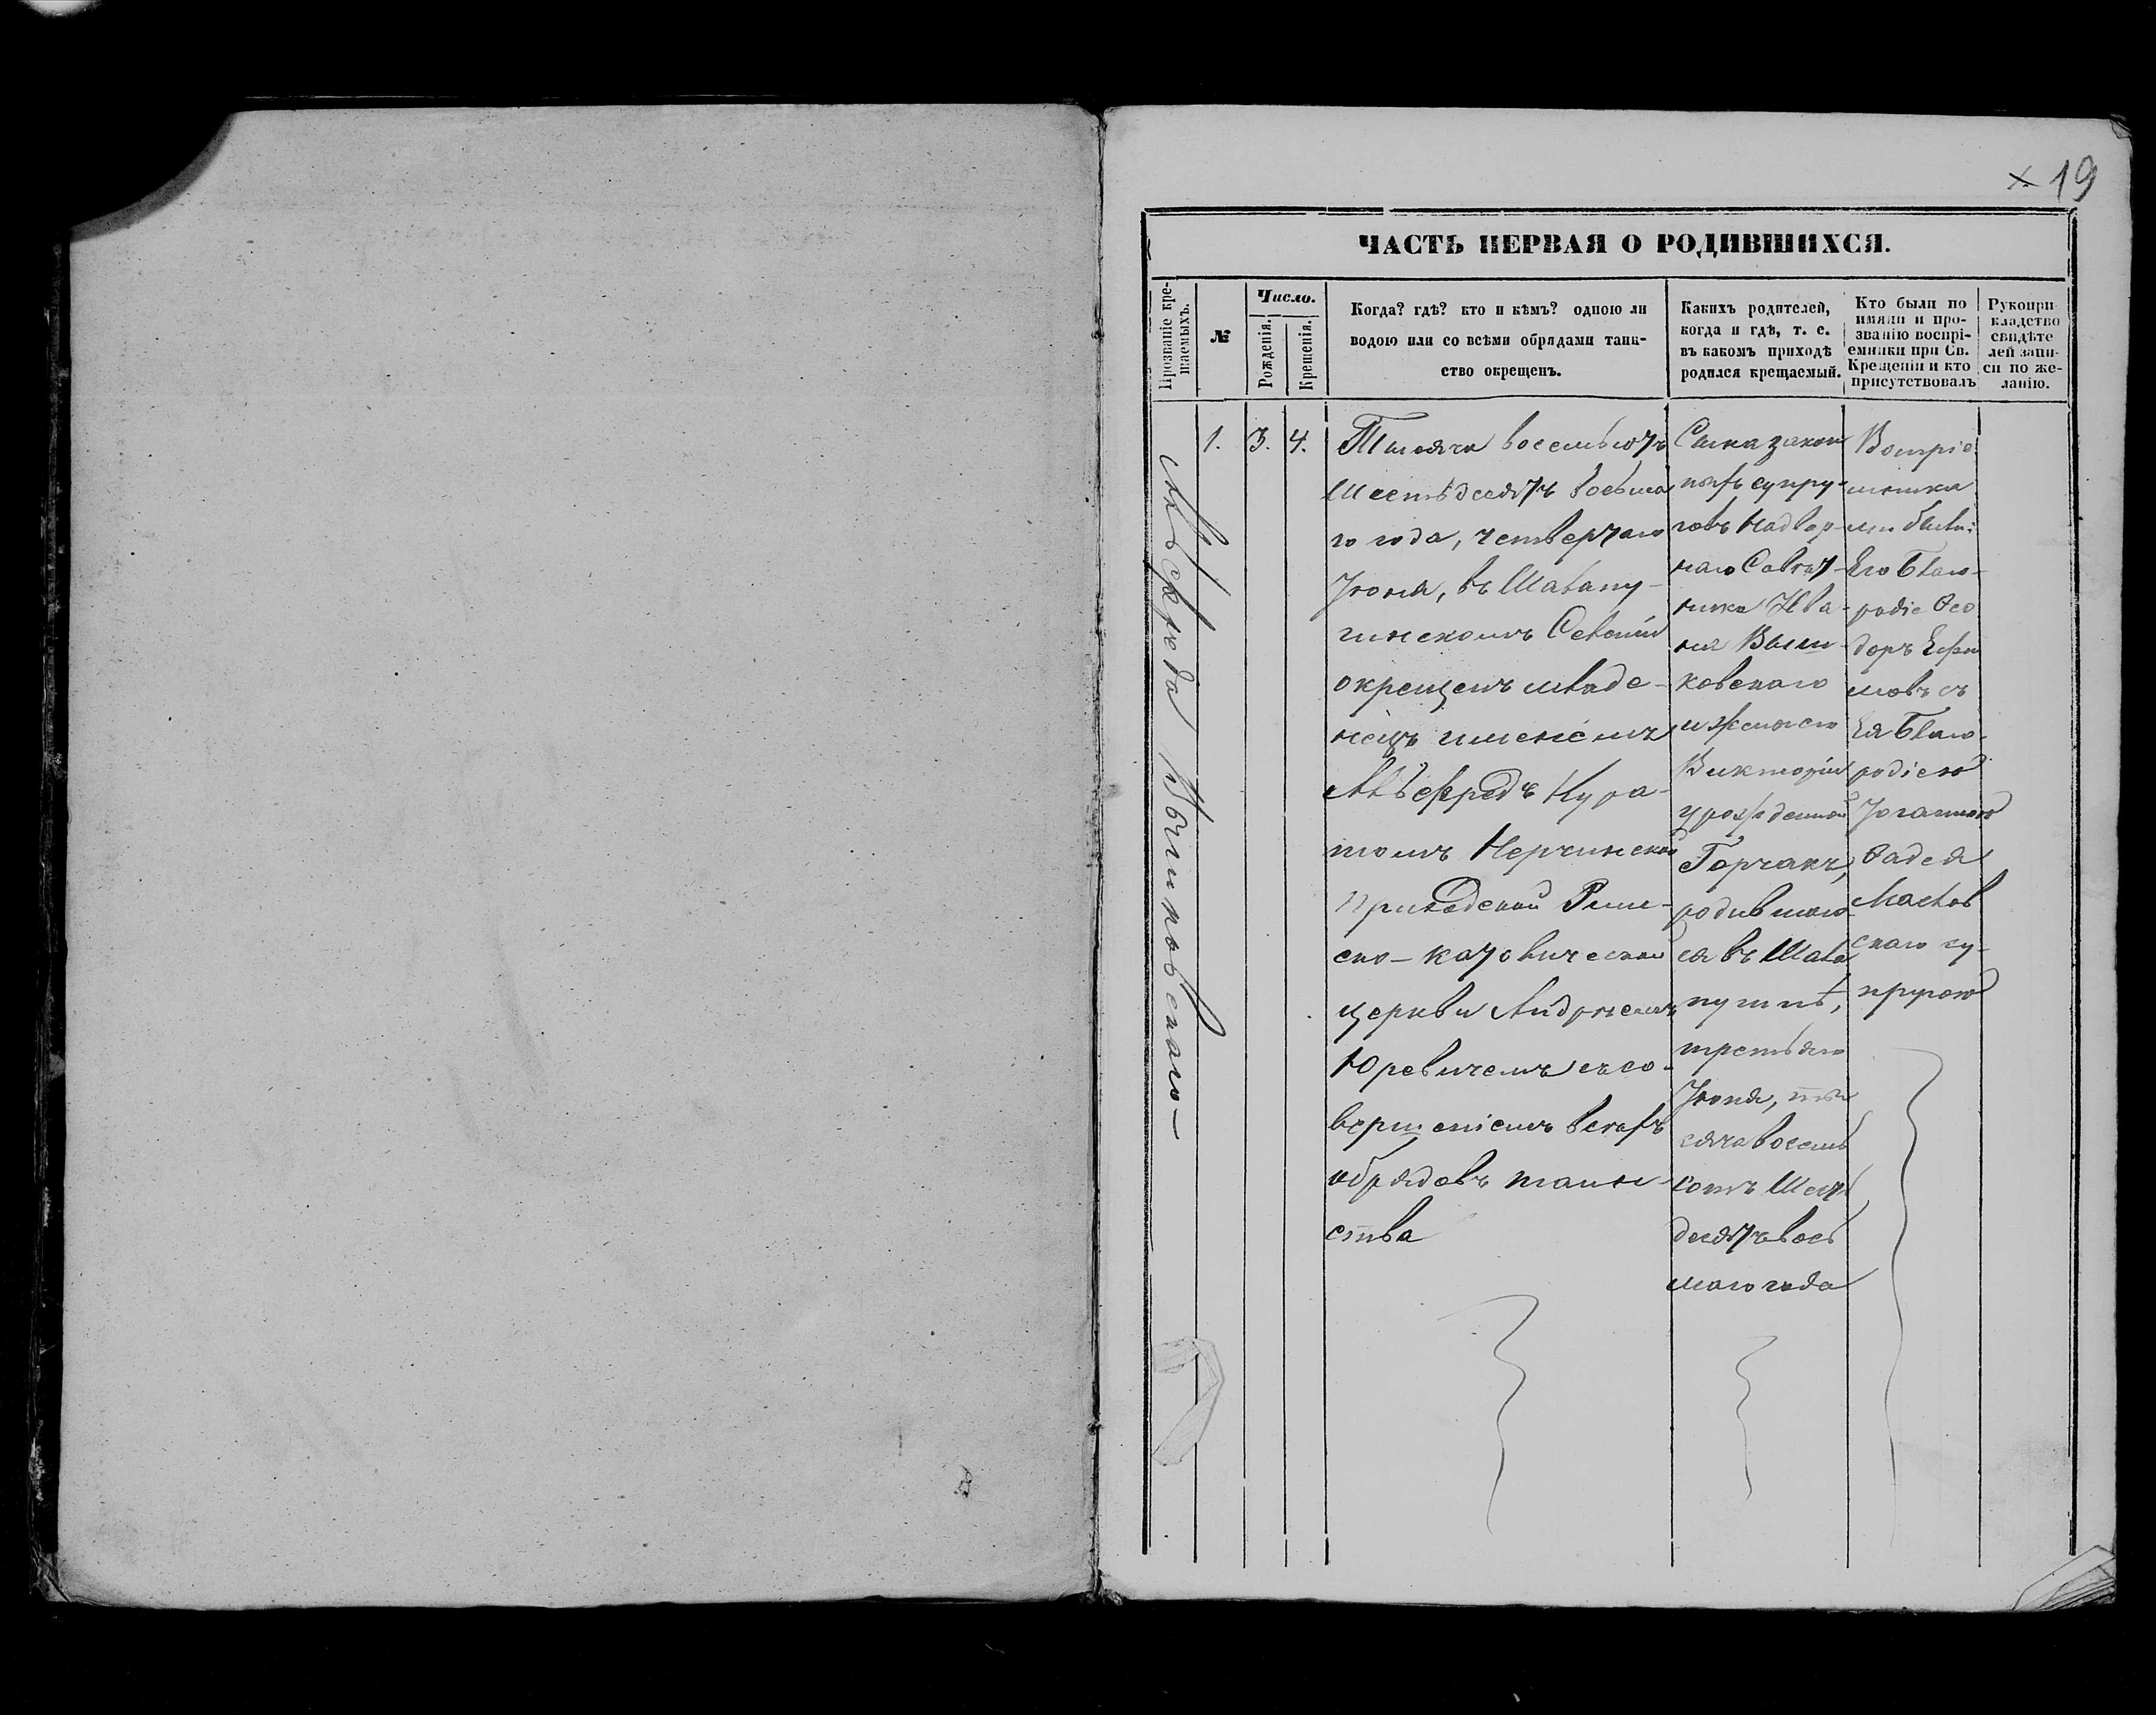 19
ЧАСТЬ ПЕРВАЯ О РОДИВШИХСЯ.
Прозваніе кре-
щаемыхъ.
№
Число.
Рожденія.
Крещенія.
Когда? гдѣ? кто и кѣмъ? одною ли
водою или со всѣми обрядами таин-
ство окрещенъ.
Какихъ родителей,
когда и гдѣ, т. е.
въ какомъ приходѣ
родился крещаемый.
Кто были по
имяни и про-
званію воспрі-
емники при Св.
Крещеніи и кто
присутствовалъ
Рукопри-
кладство
свидѣте
лей запи-
си по же-
ланію.
Альфреда
1.
3.
4.
Тысяча восемьсотъ
шестьдесятъ восьма
го года, четвертаго
Іюня, въ Шелапу-
гинскомъ Селеніи
окрещенъ младе-
нецъ именемъ
Альфредъ Кура-
томъ Нерчинской
Приходской Рим-
ско-католической
церкви Андреемъ
Юревичемъ съ со-
вершеніемъ всѣхъ
обрядовъ таин-
ства
Сына закон
ныхъ супру-
говъ Надвор-
наго Совѣт-
ника Ива-
на
ковскаго
и жены его
Викторіи
урожденной
Горчакъ,
родившаго
ся въ Шела
пугинѣ,
третьяго
Іюня, ты
сяча восемь
сотъ шесть
десятъ вось
маго года
Воспріе
мника
ми были:
Его Благо-
родіе Ѳео
доръ Ефи
мовъ съ
Ея Благо-
родіею
Іоганною
Ѳадея
Маслов
скаго су-
пругою